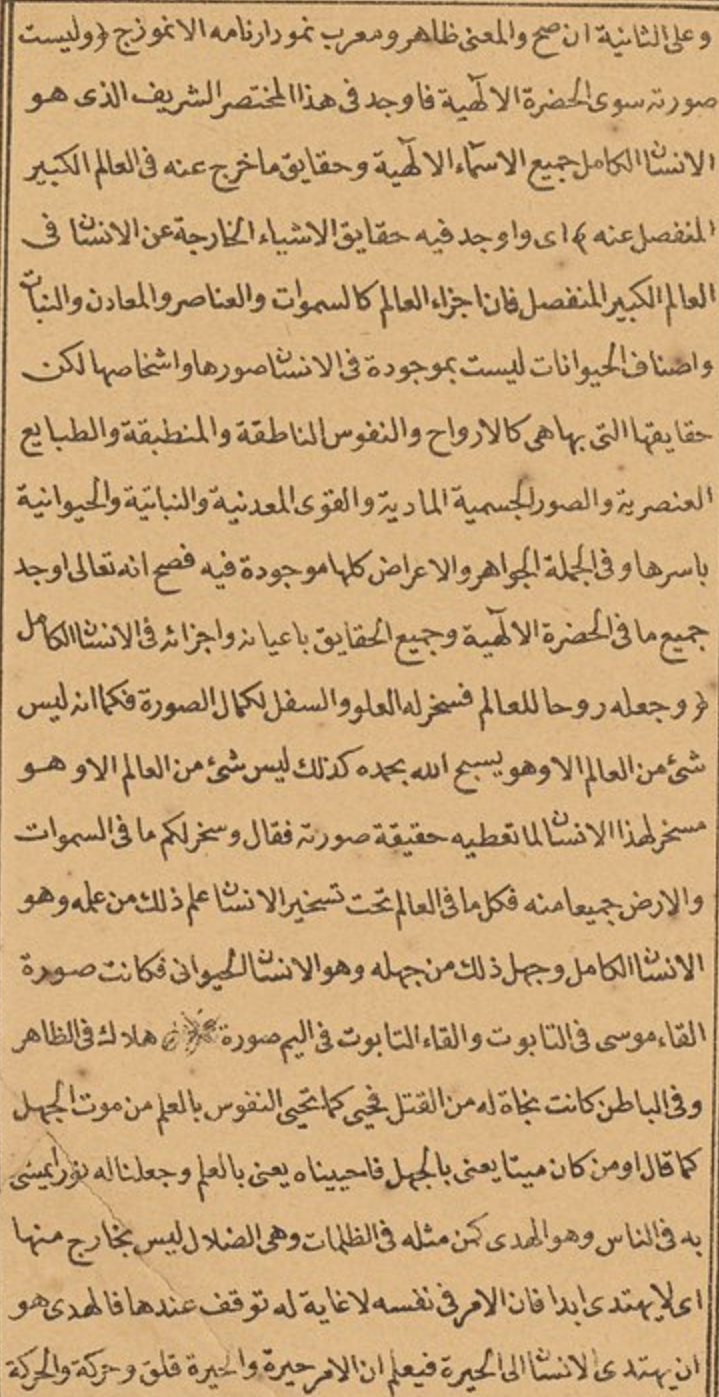 وعلى الثانية ان صح والمعنى ظاهر ومعرب نمودار نامه الانموذج ﴿ وليست
صورته سوى الحضرة الالٓهية فاوجد فى هذا المختصر الشريف الذى هو
الانسان الكامل جميع الاسمآء الالٓهية وحقايق ما خرج عنه فى العالم الكبير
المنفصل عنه ﴾ اى واوجد فيه حقايق الاشياء الخارجة عن الانسان فى
العالم الكبير المنفصل فان اجزاء العالم كالسموات والعناصر والمعادن والنبات
واصناف الحيوانات ليست بموجودة فى الانسان صورها واشخاصها لكن
حقايقها التى بها هى كالارواح والنفوس الناطقة والمنطبقة والطبايع
العنصرية والصور الجسمية المادية والقوى المعدنية والنباتية والحيوانية
باسرها وفى الجملة الجواهر والاعراض كلها موجودة فيه فصح انه تعالى اوجد
جميع ما فى الحضرة الالٓهية وجميع الحقايق باعيانه واجزائه فى الانسان الكامل
﴿ وجعله روحا للعالم فسخر له العلو والسفل لكمال الصورة فكما انه ليس
شئ من العالم الا وهو يسبح الله بحمده كذلك ليس شئ من العالم الا وهو
مسخر لهذا الانسان لما تعطيه حقيقة صورته فقال وسخر لكم ما فى السموات
والارض جميعا منه فكل ما فى العالم تحت تسخير الانسان علم ذلك من علمه وهو
الانسان الكامل وجهل ذلك من جهله وهو الانسان الحيوانى فكانت صورة
القاء موسى فى التابوت والقاء التابوت فى اليم صورة هلاك فى الظاهر
وفى الباطن كانت نجاة له من القتل فحيى كما تحيى النفوس بالعلم من موت الجهل
كما قال اومن كان ميتا يعنى بالجهل فاحييناه يعنى بالعلم وجعلنا له نورا يمشى
به فى الناس وهو الهدى كمن مثله فى الظلمات وهى الضلال ليس بخارج منها
اى لا يهتدى ابدا فان الامر فى نفسه لا غاية له توقف عندها فالهدى هو
ان يهتدى الانسان الى الحيرة فيعلم ان الامر حيرة والحيرة قلق وحركة والحركة